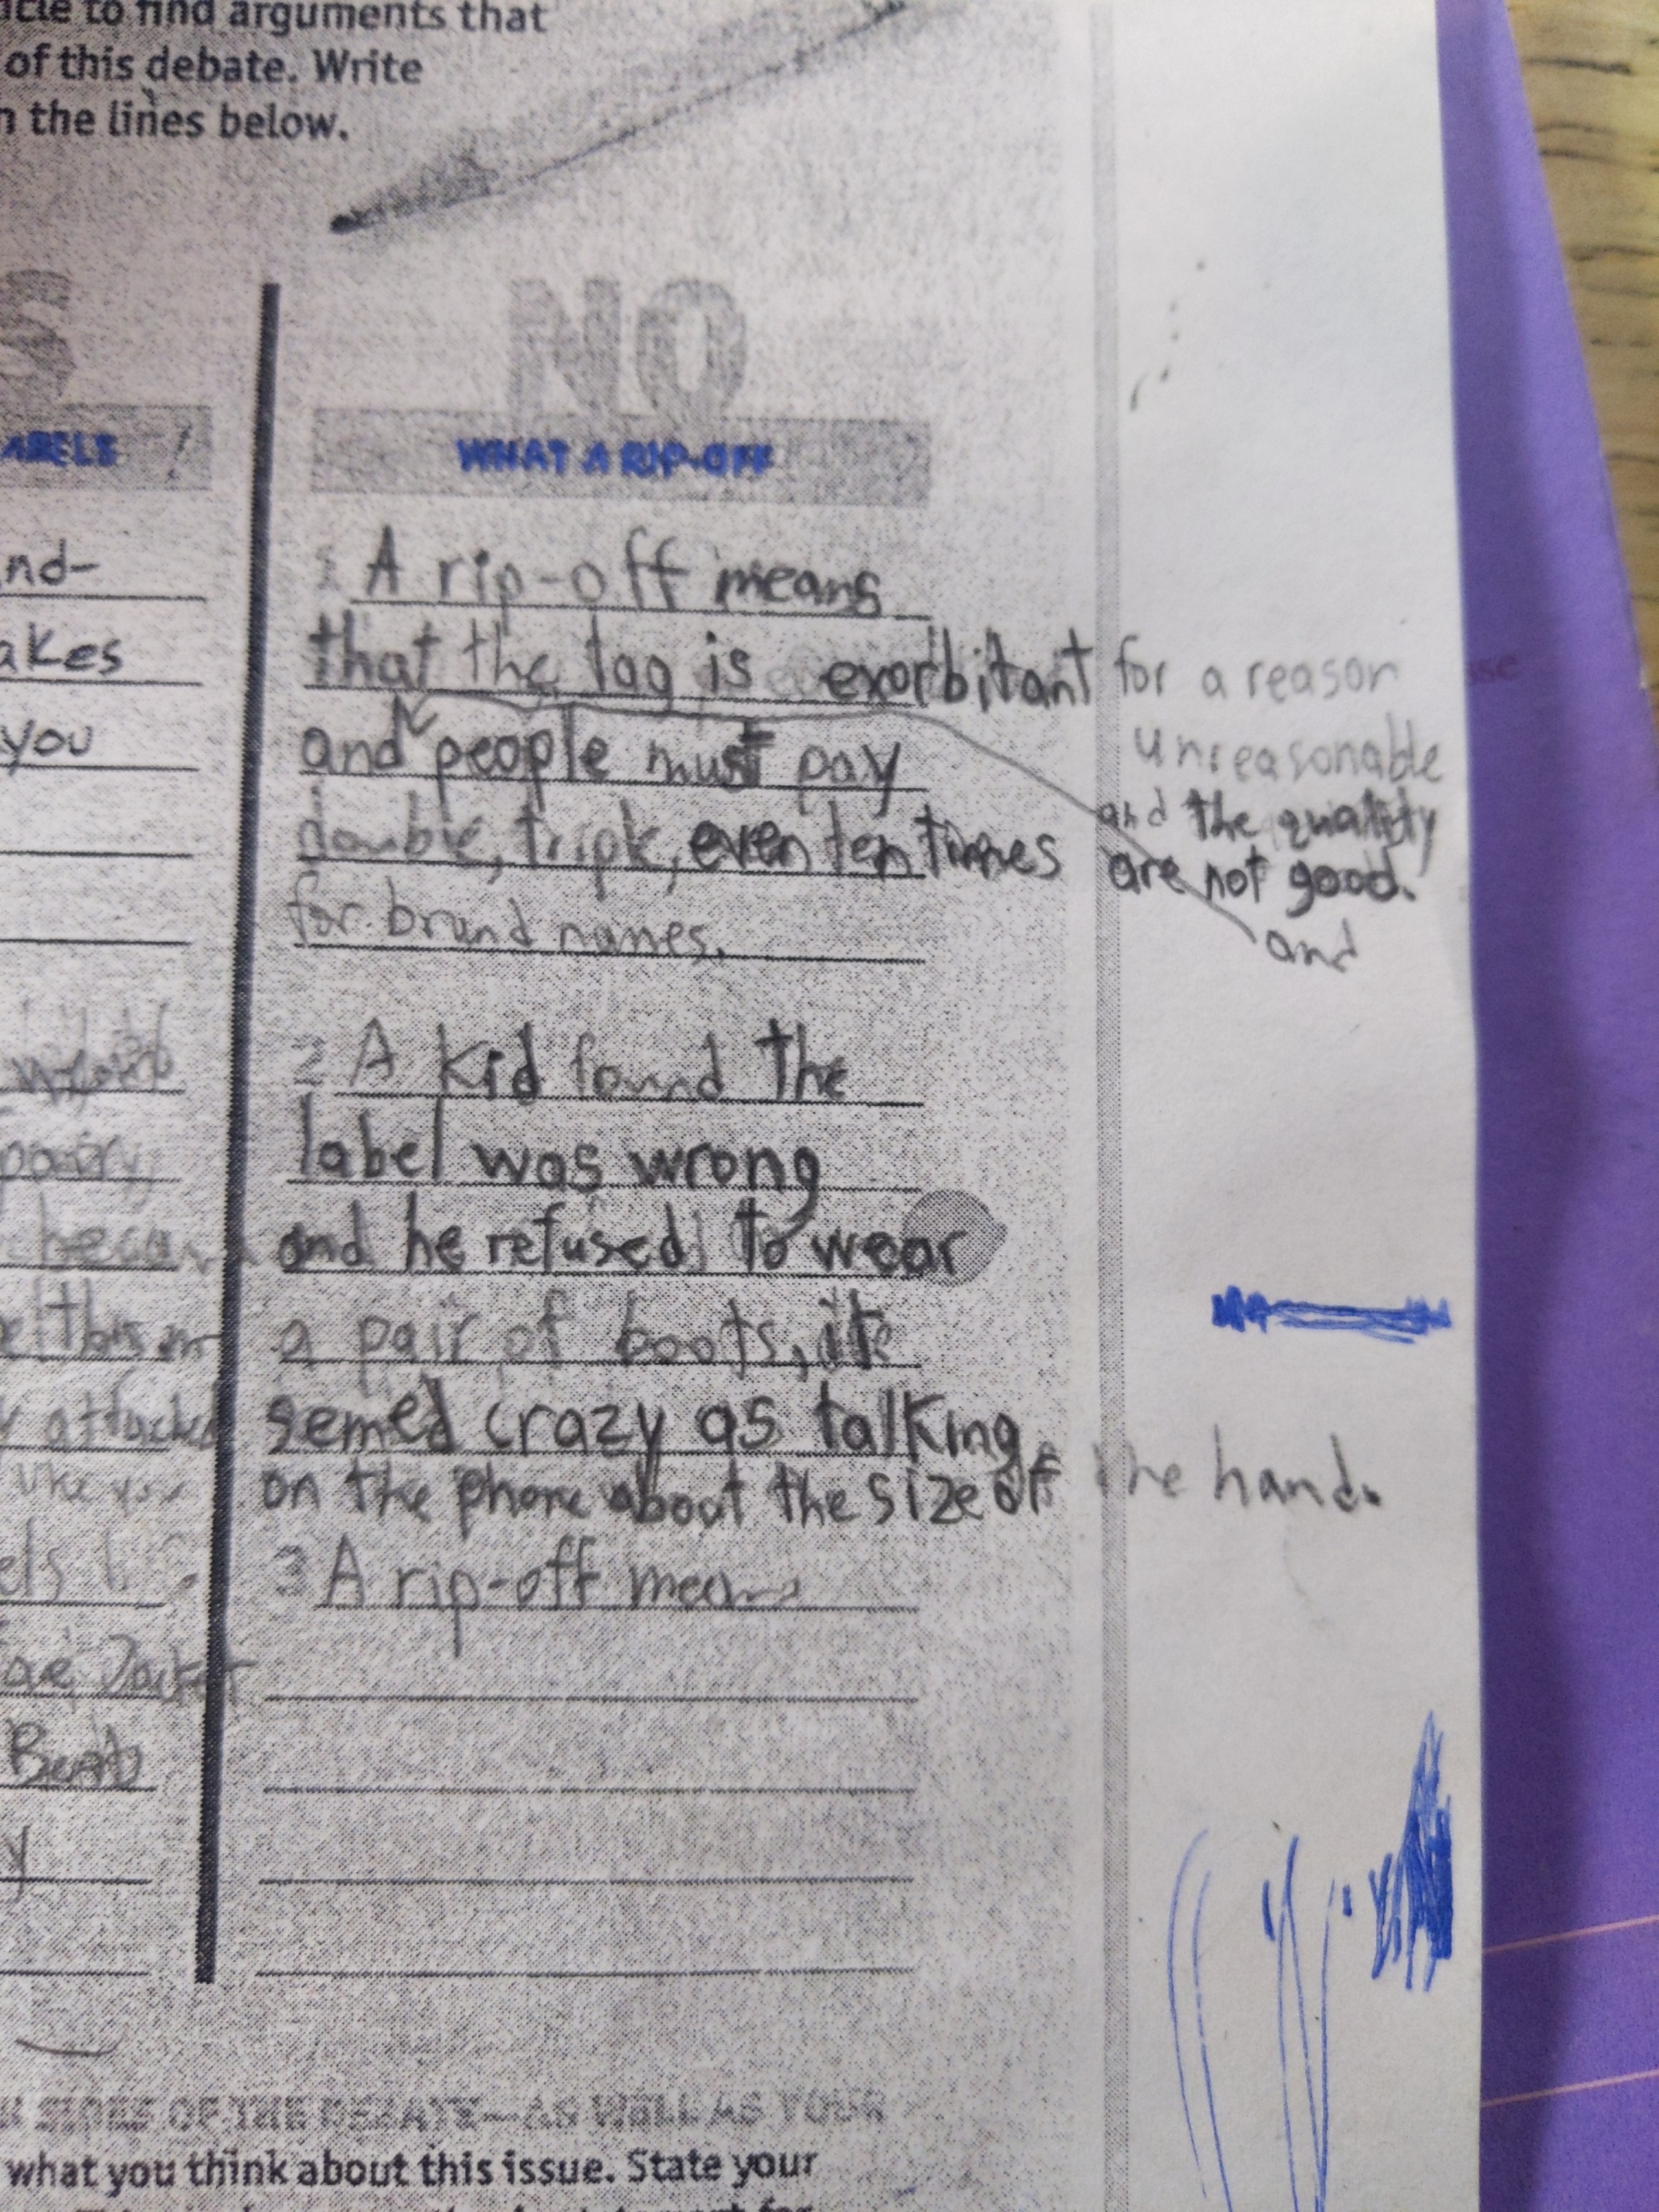 to find arguments that
of this debate. Write
the lines below.
S
NO
ABELS !
WHAT A RIP-OFF
nd-
akes
you
1 A rip-off means
that the tag is exorbitant for a reason
unreasonable
and people must pay
and the quality
double, triple, even ten times
are not good.
for brand names.
and
2 A kid found the
label was wrong
and he refused to wear
a pair of boots, its
semed crazy as talking
on the phone about the size of the hand.
3 A rip-off means
attached
like you
Jacket
y
SIDES OF THE DEBATE—AS WELL AS YOUR
what you think about this issue. State your